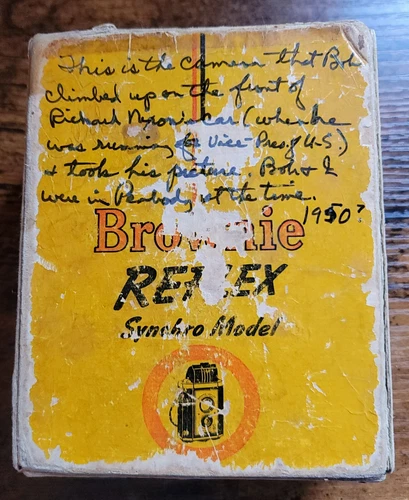 This is the camera that Bob
climbed up on the front of
Richard Nixon's car (when he
was running for Vice-Pres. of U.S.)
& took his picture. Bob & I
were in Peabody at the time.
1950?
Brownie
REFLEX
Synchro Model